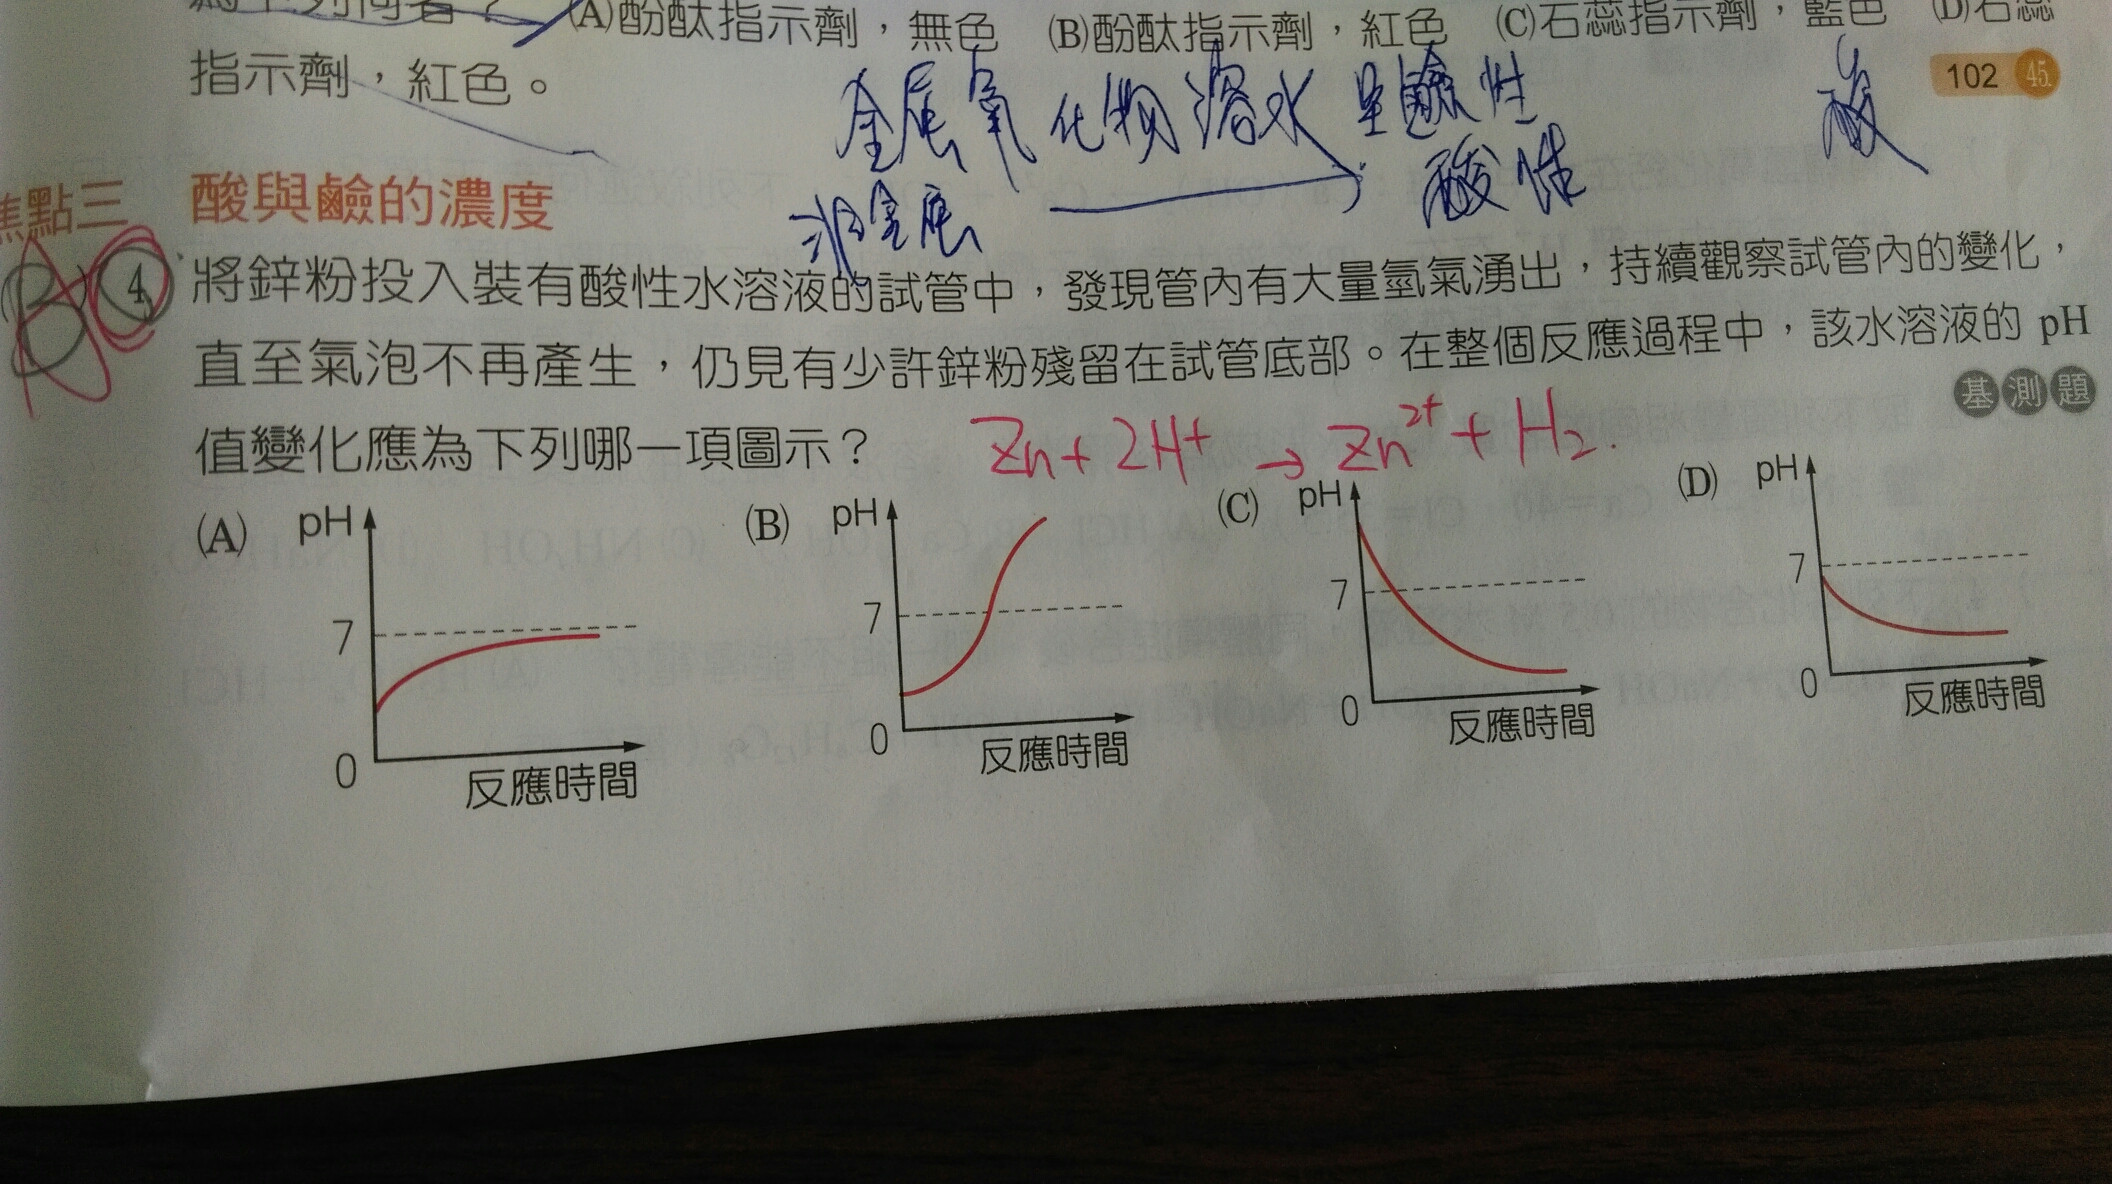 (A)酚酞指示劑，無色 (B)酚酞指示劑，紅色 (C)石蕊指示劑，藍色 (D)石蕊
指示劑，紅色。
102 45.
金属氧化物溶水呈鹼性
酸
非金属 酸性
焦點三 酸與鹼的濃度
4 將鋅粉投入裝有酸性水溶液的試管中，發現管內有大量氫氣湧出，持續觀察試管內的變化，
直至氣泡不再產生，仍見有少許鋅粉殘留在試管底部。在整個反應過程中，該水溶液的 pH
值變化應為下列哪一項圖示？
基測題
Zn + 2H+ → Zn2+ + H2.
(A) pH
7
0
反應時間
(B) pH
7
0
反應時間
(C) pH
7
0
反應時間
(D) pH
7
0
反應時間